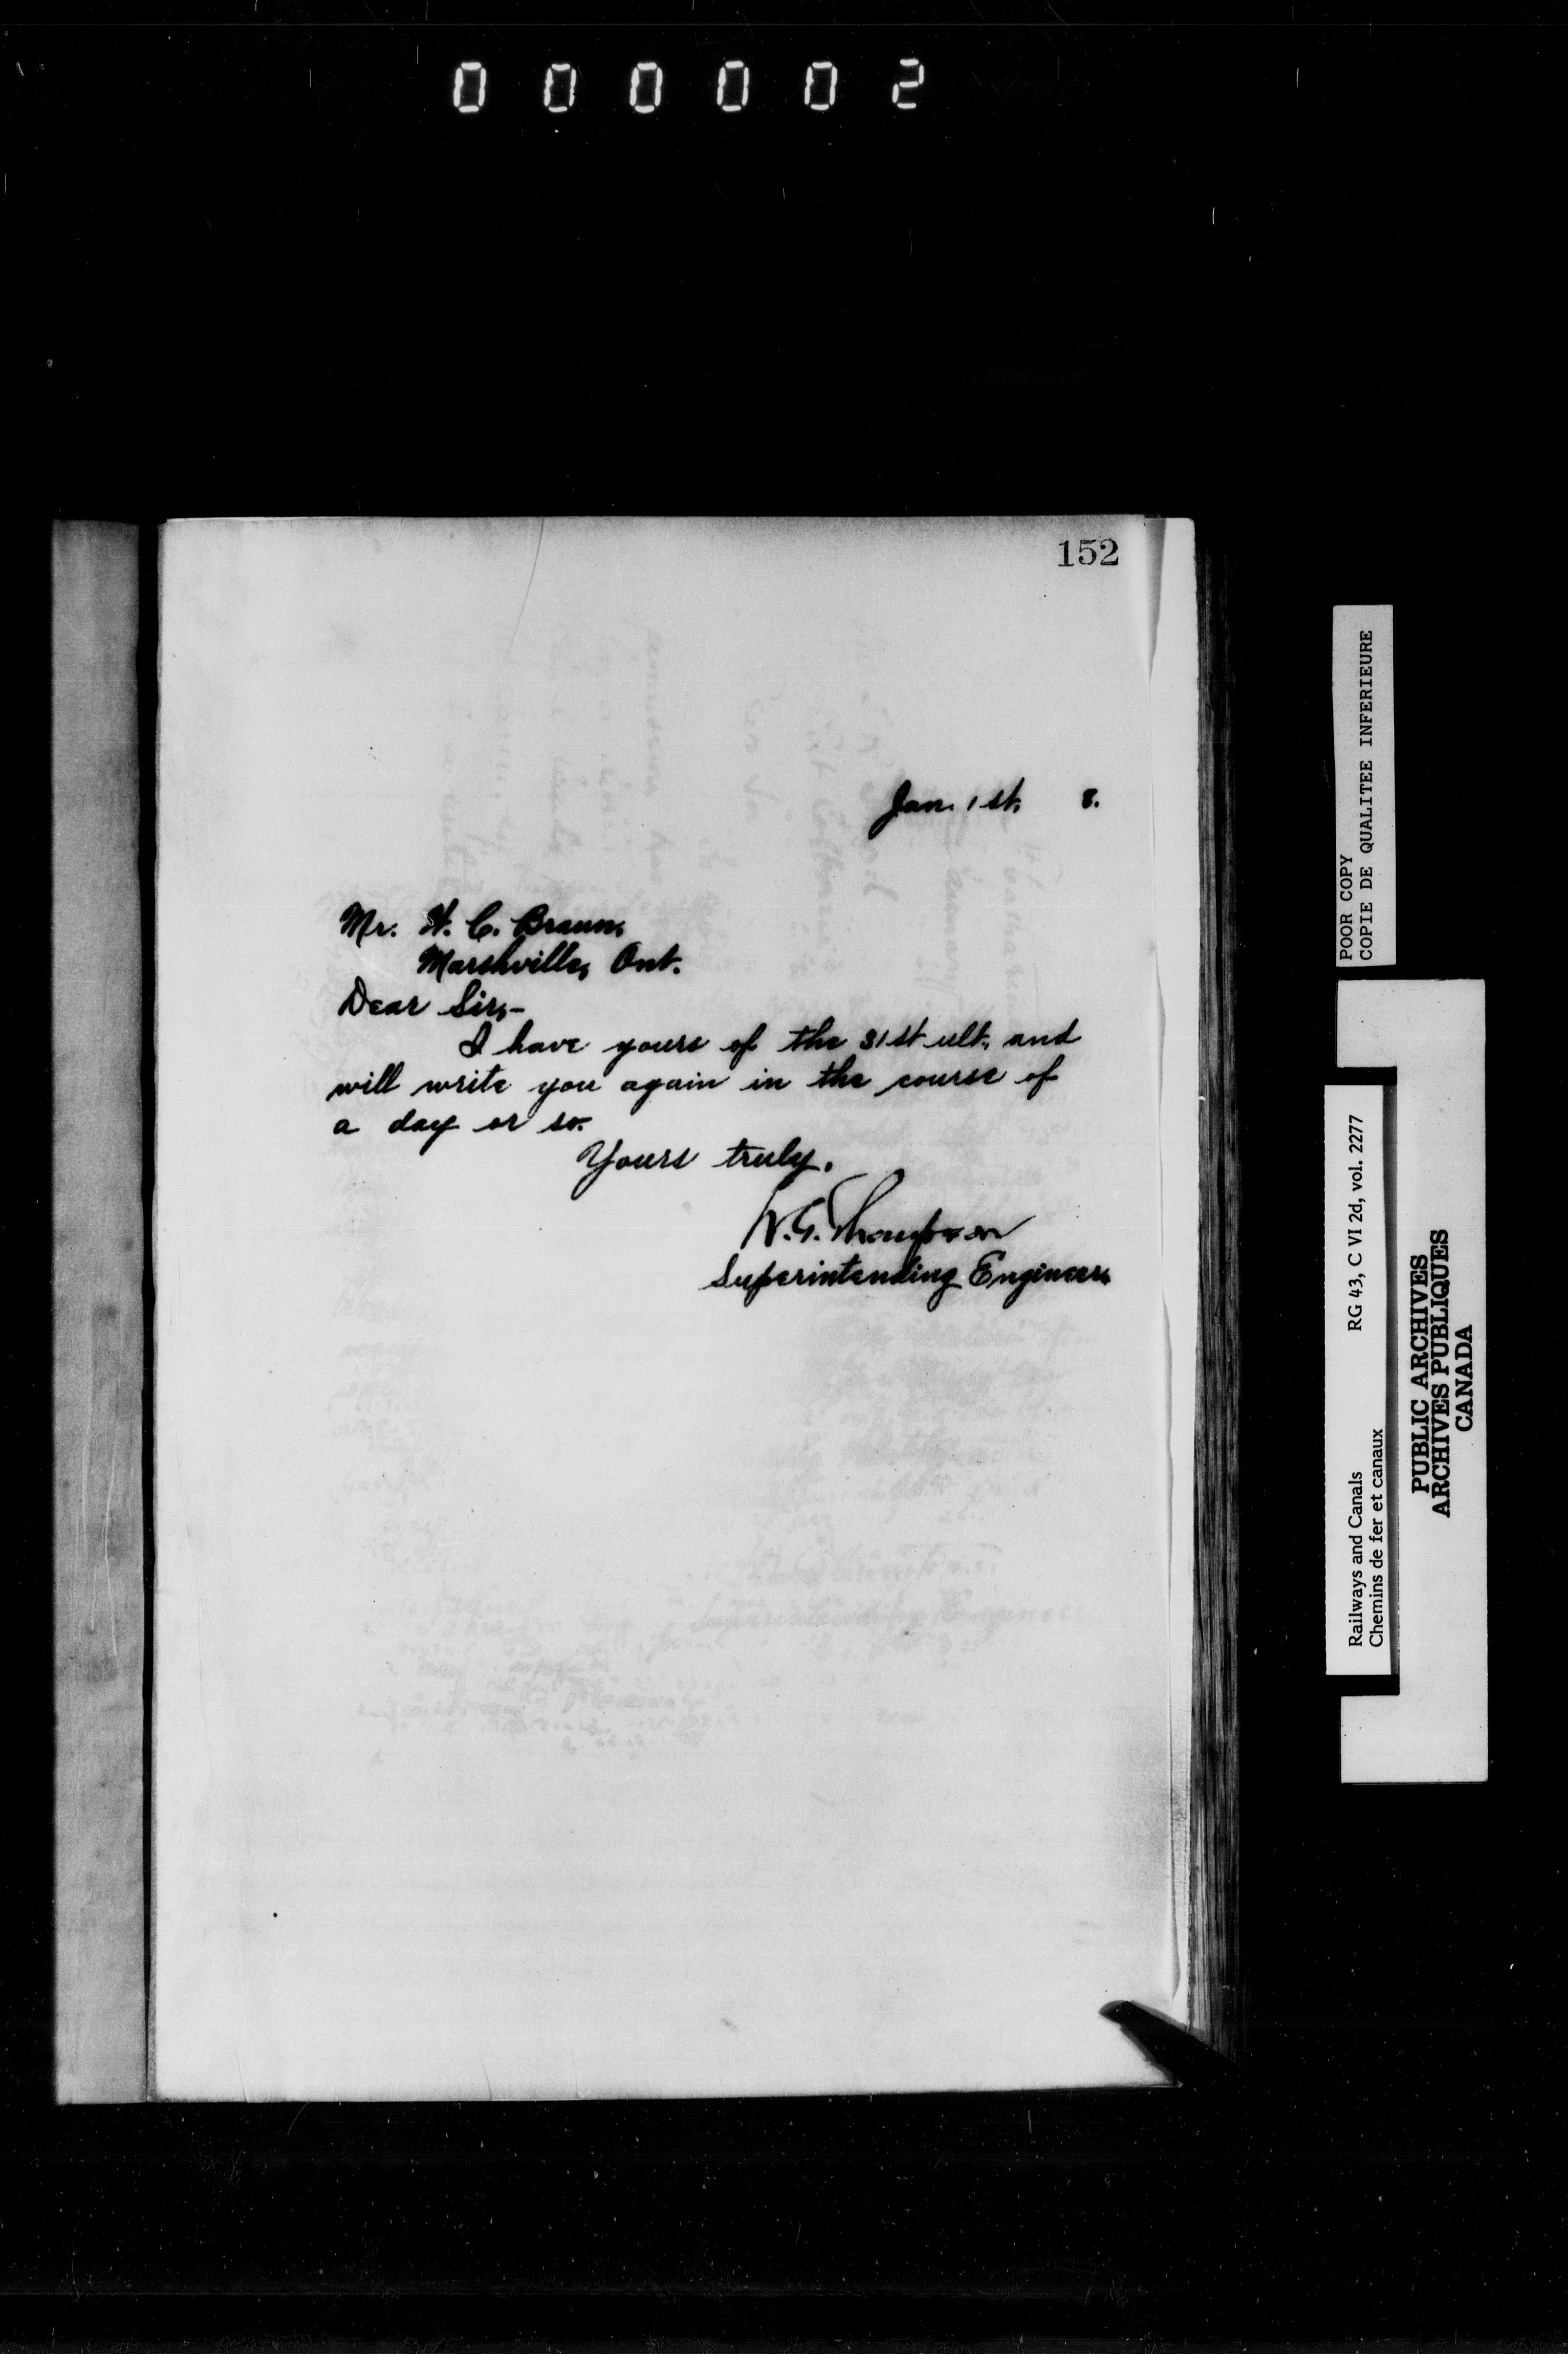 000002
152
Jan. 1st, 8.
Mr. H. C. Braun,
Marshville, Ont.
Dear Sir,-
I have yours of the 31st ult., and
will write you again in the course of
a day or so.
Yours truly,
W. G. Thompson
Superintending Engineer.
POOR COPY
COPIE DE QUALITEE INFERIEURE
Railways and Canals RG 43, C VI 2d, vol. 2277
Chemins de fer et canaux
PUBLIC ARCHIVES
ARCHIVES PUBLIQUES
CANADA